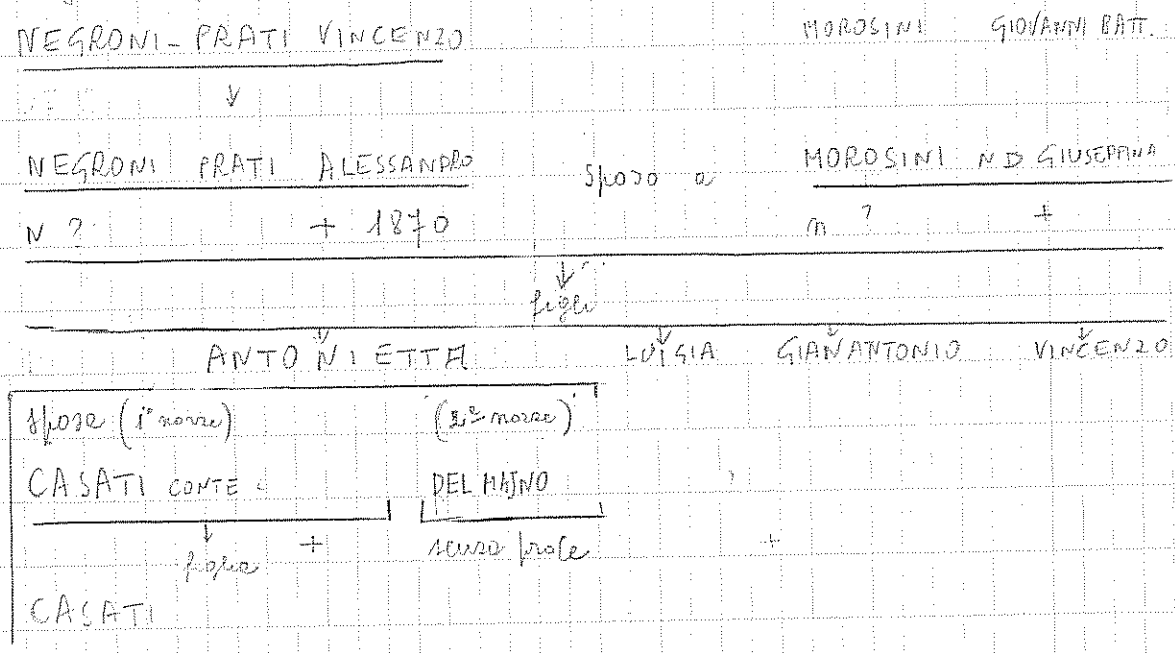 NEGRONI-PRATI VINCENZO MOROSINI GIOVANNI BATT.
NEGRONI PRATI ALESSANDRO Sposo a MOROSINI N D GIUSEPPINA
N ? + 1870 n ? +
figli
ANTONIETTA LUIGIA GIANANTONIO VINCENZO
sposa (1° nozze) (2° nozze)
CASATI CONTE DEL MAJNO
figlia + senza prole +
CASATI